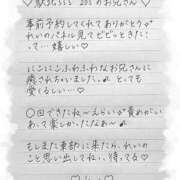 ♡ 駅ちか 205 のお兄さん ♡
事前予約してくれてありがとう
れいのパネル見てビビッときたっ
って… 嬉しい♡
にこにこふわふわなお兄さんに
癒されちゃいました♪ とても
愛くるしい…♡
〇回できたね〜えらい♡ 責めがい
あって楽しかったなぁ〜♪
もしまた東京に来たら、れいの
こと思い出してねっ、待ってる♡